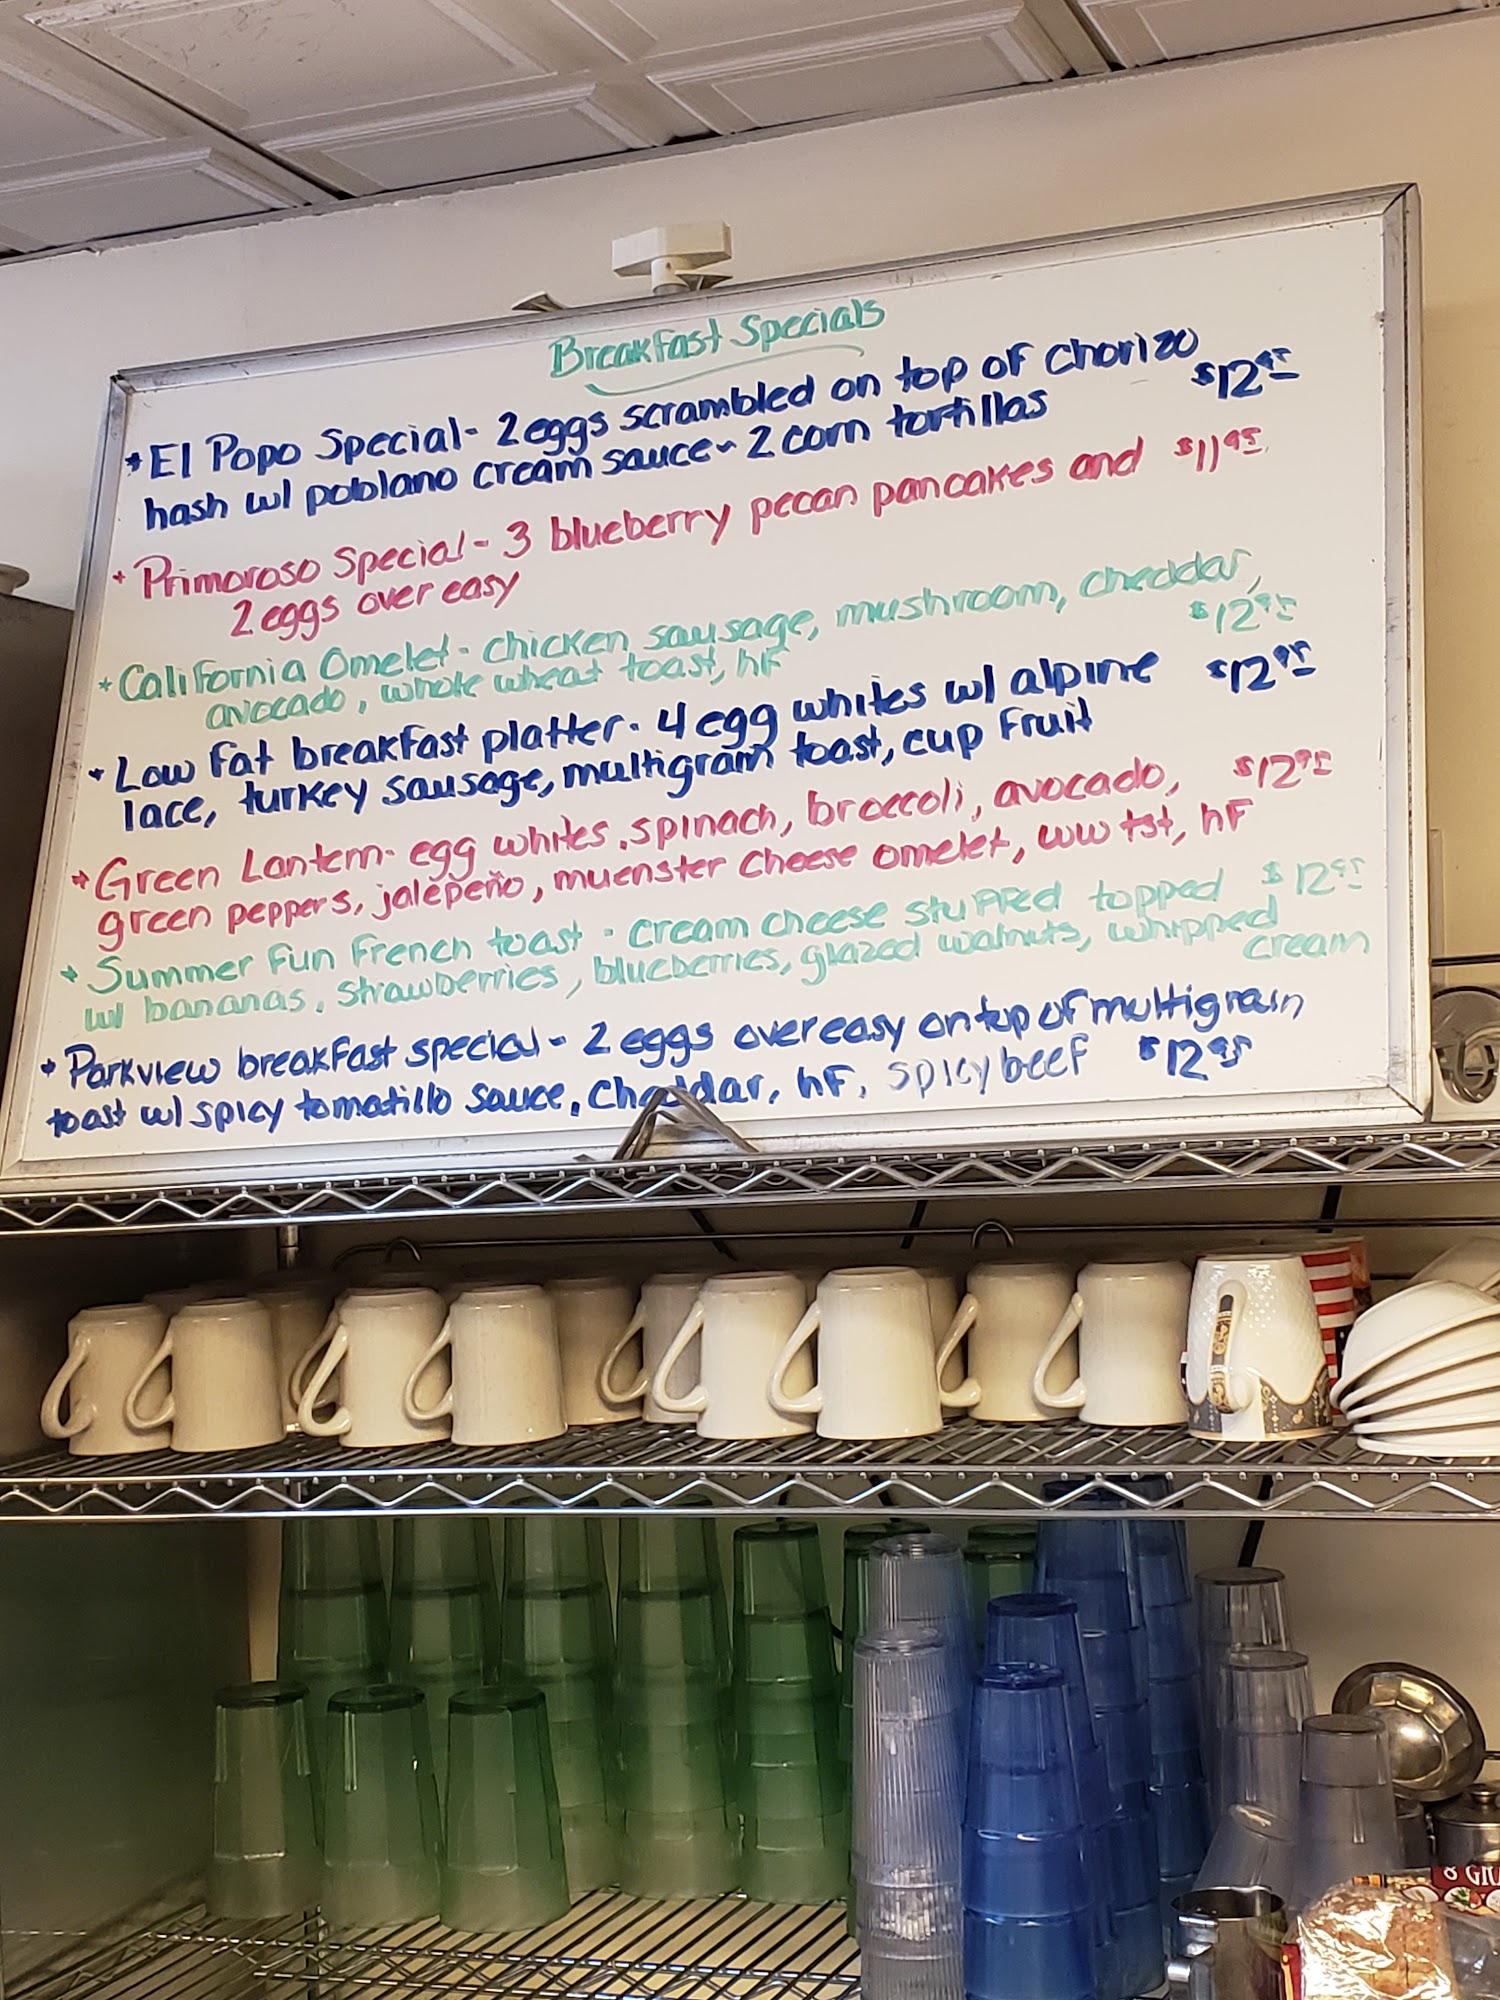 Breakfast Specials
* El Popo Special - 2 eggs scrambled on top of chorizo
hash w/ poblano cream sauce ~ 2 corn tortillas $12.95
* Primoroso Special - 3 blueberry pecan pancakes and $11.95
2 eggs over easy
* California Omelet - chicken sausage, mushroom, cheddar,
avocado, whole wheat toast, hF $12.95
* Low Fat breakfast platter - 4 egg whites w/ alpine $12.95
lace, turkey sausage, multigrain toast, cup fruit
* Green Lantern - egg whites, spinach, broccoli, avocado, $12.95
green peppers, jalepeño, muenster cheese omelet, ww tst, hF
* Summer Fun French toast - cream cheese stuffed topped $12.95
w/ bananas, strawberries, blueberries, glazed walnuts, whipped
cream
* Parkview breakfast special - 2 eggs over easy on top of multigrain
toast w/ spicy tomatillo sauce, cheddar, hF, spicy beef $12.95
8